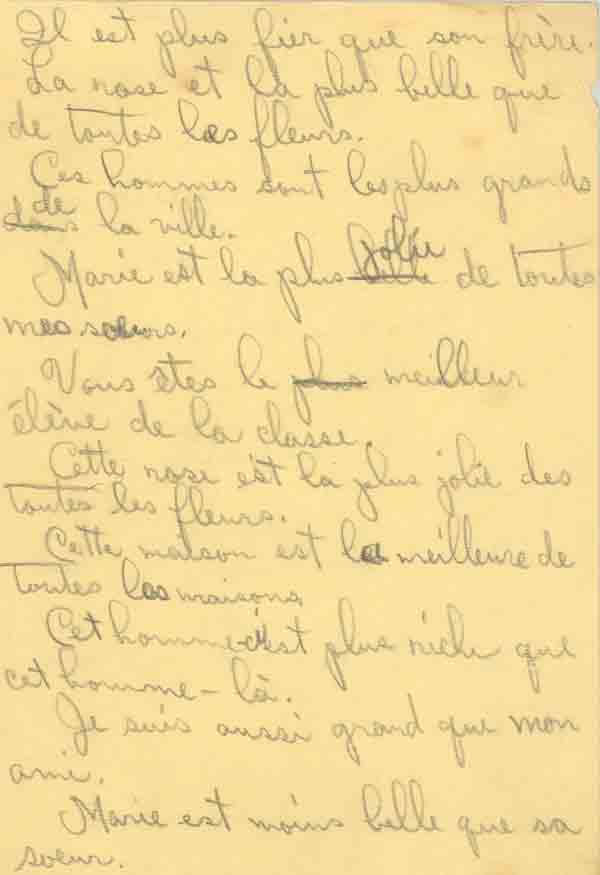 Il est plus fier que son frère.
La rose et la plus belle que
de toutes les fleurs.
Ces hommes sont les plus grands
dans de la ville.
Marie est la plus belle jolie de toutes
mes soeurs.
Vous êtes le plus meilleur
élève de la classe.
Cette rose est la plus jolie des
toutes les fleurs.
Cette maison est la meilleure de
toutes les maisons.
Cet homme-ci est plus riche que
cet homme-là.
Je suis aussi grand que mon
ami.
Marie est moins belle que sa
soeur.